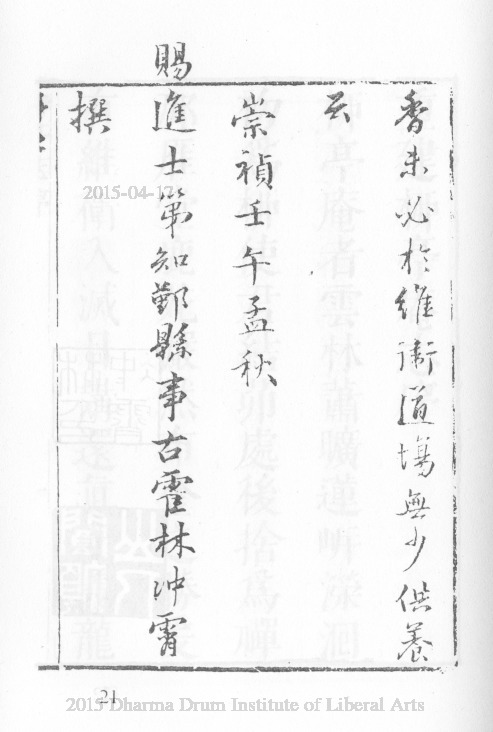 香未必於維衛道場無少供養
云
崇禎壬午孟秋
賜進士第知鄞縣事古霍林沖霄
撰
2015-04-17
21
2015 Dharma Drum Institute of Liberal Arts